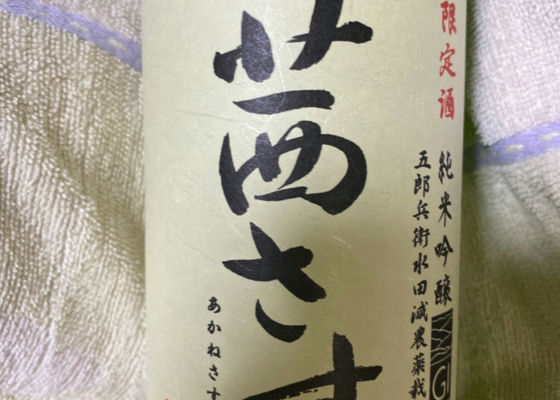 限定酒
純米吟醸
五郎兵衛水田減農薬栽
茜さす
あかねさす